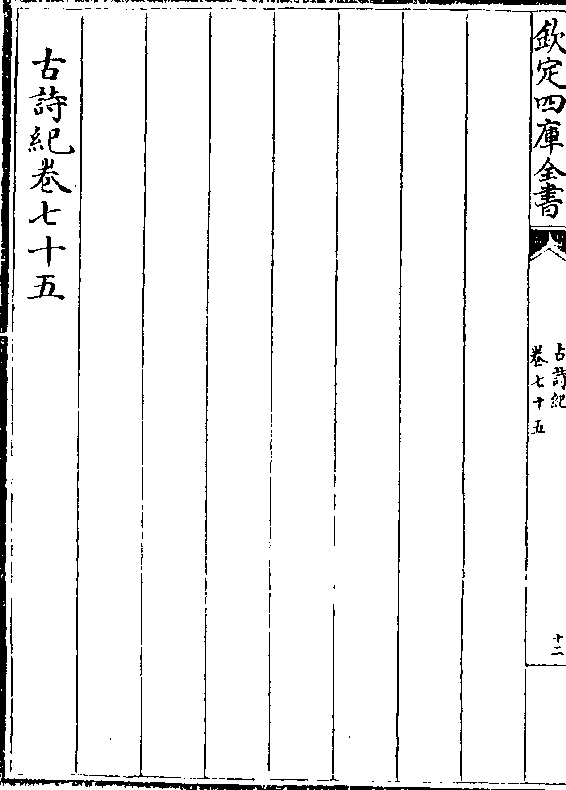 欽定四庫全書
古詩紀
卷七十五
十二
古詩紀卷七十五